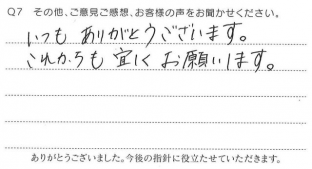 Q7 その他、ご意見ご感想、お客様の声をお聞かせください。
いつも ありがとうございます。
これからも 宜しく お願いします。
ありがとうございました。今後の指針に役立たせていただきます。